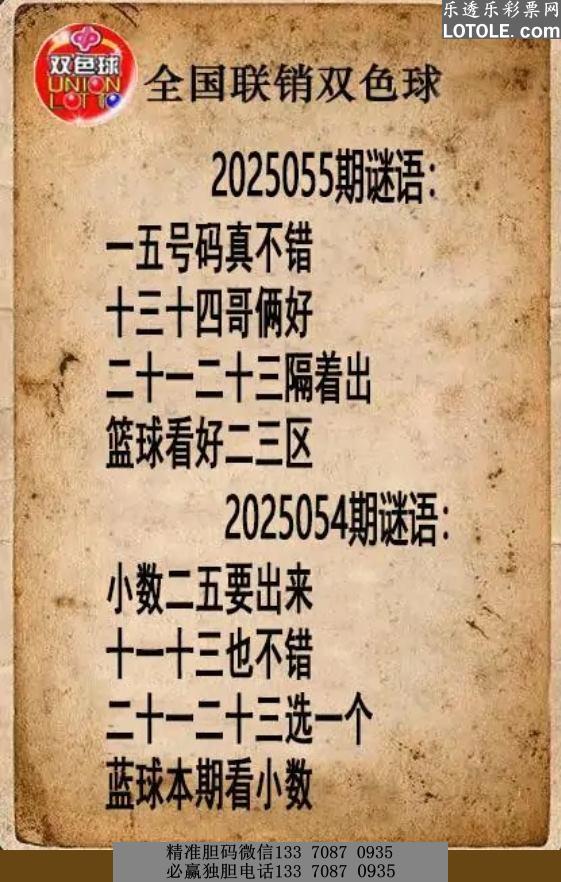 乐透乐彩票网
LOTOLE.com
双色球
UNION
LOTTO
全国联销双色球
2025055期谜语:
一五号码真不错
十三十四哥俩好
二十一二十三隔着出
篮球看好二三区
2025054期谜语:
小数二五要出来
十一十三也不错
二十一二十三选一个
蓝球本期看小数
精准胆码微信133 7087 0935
必赢独胆电话133 7087 0935